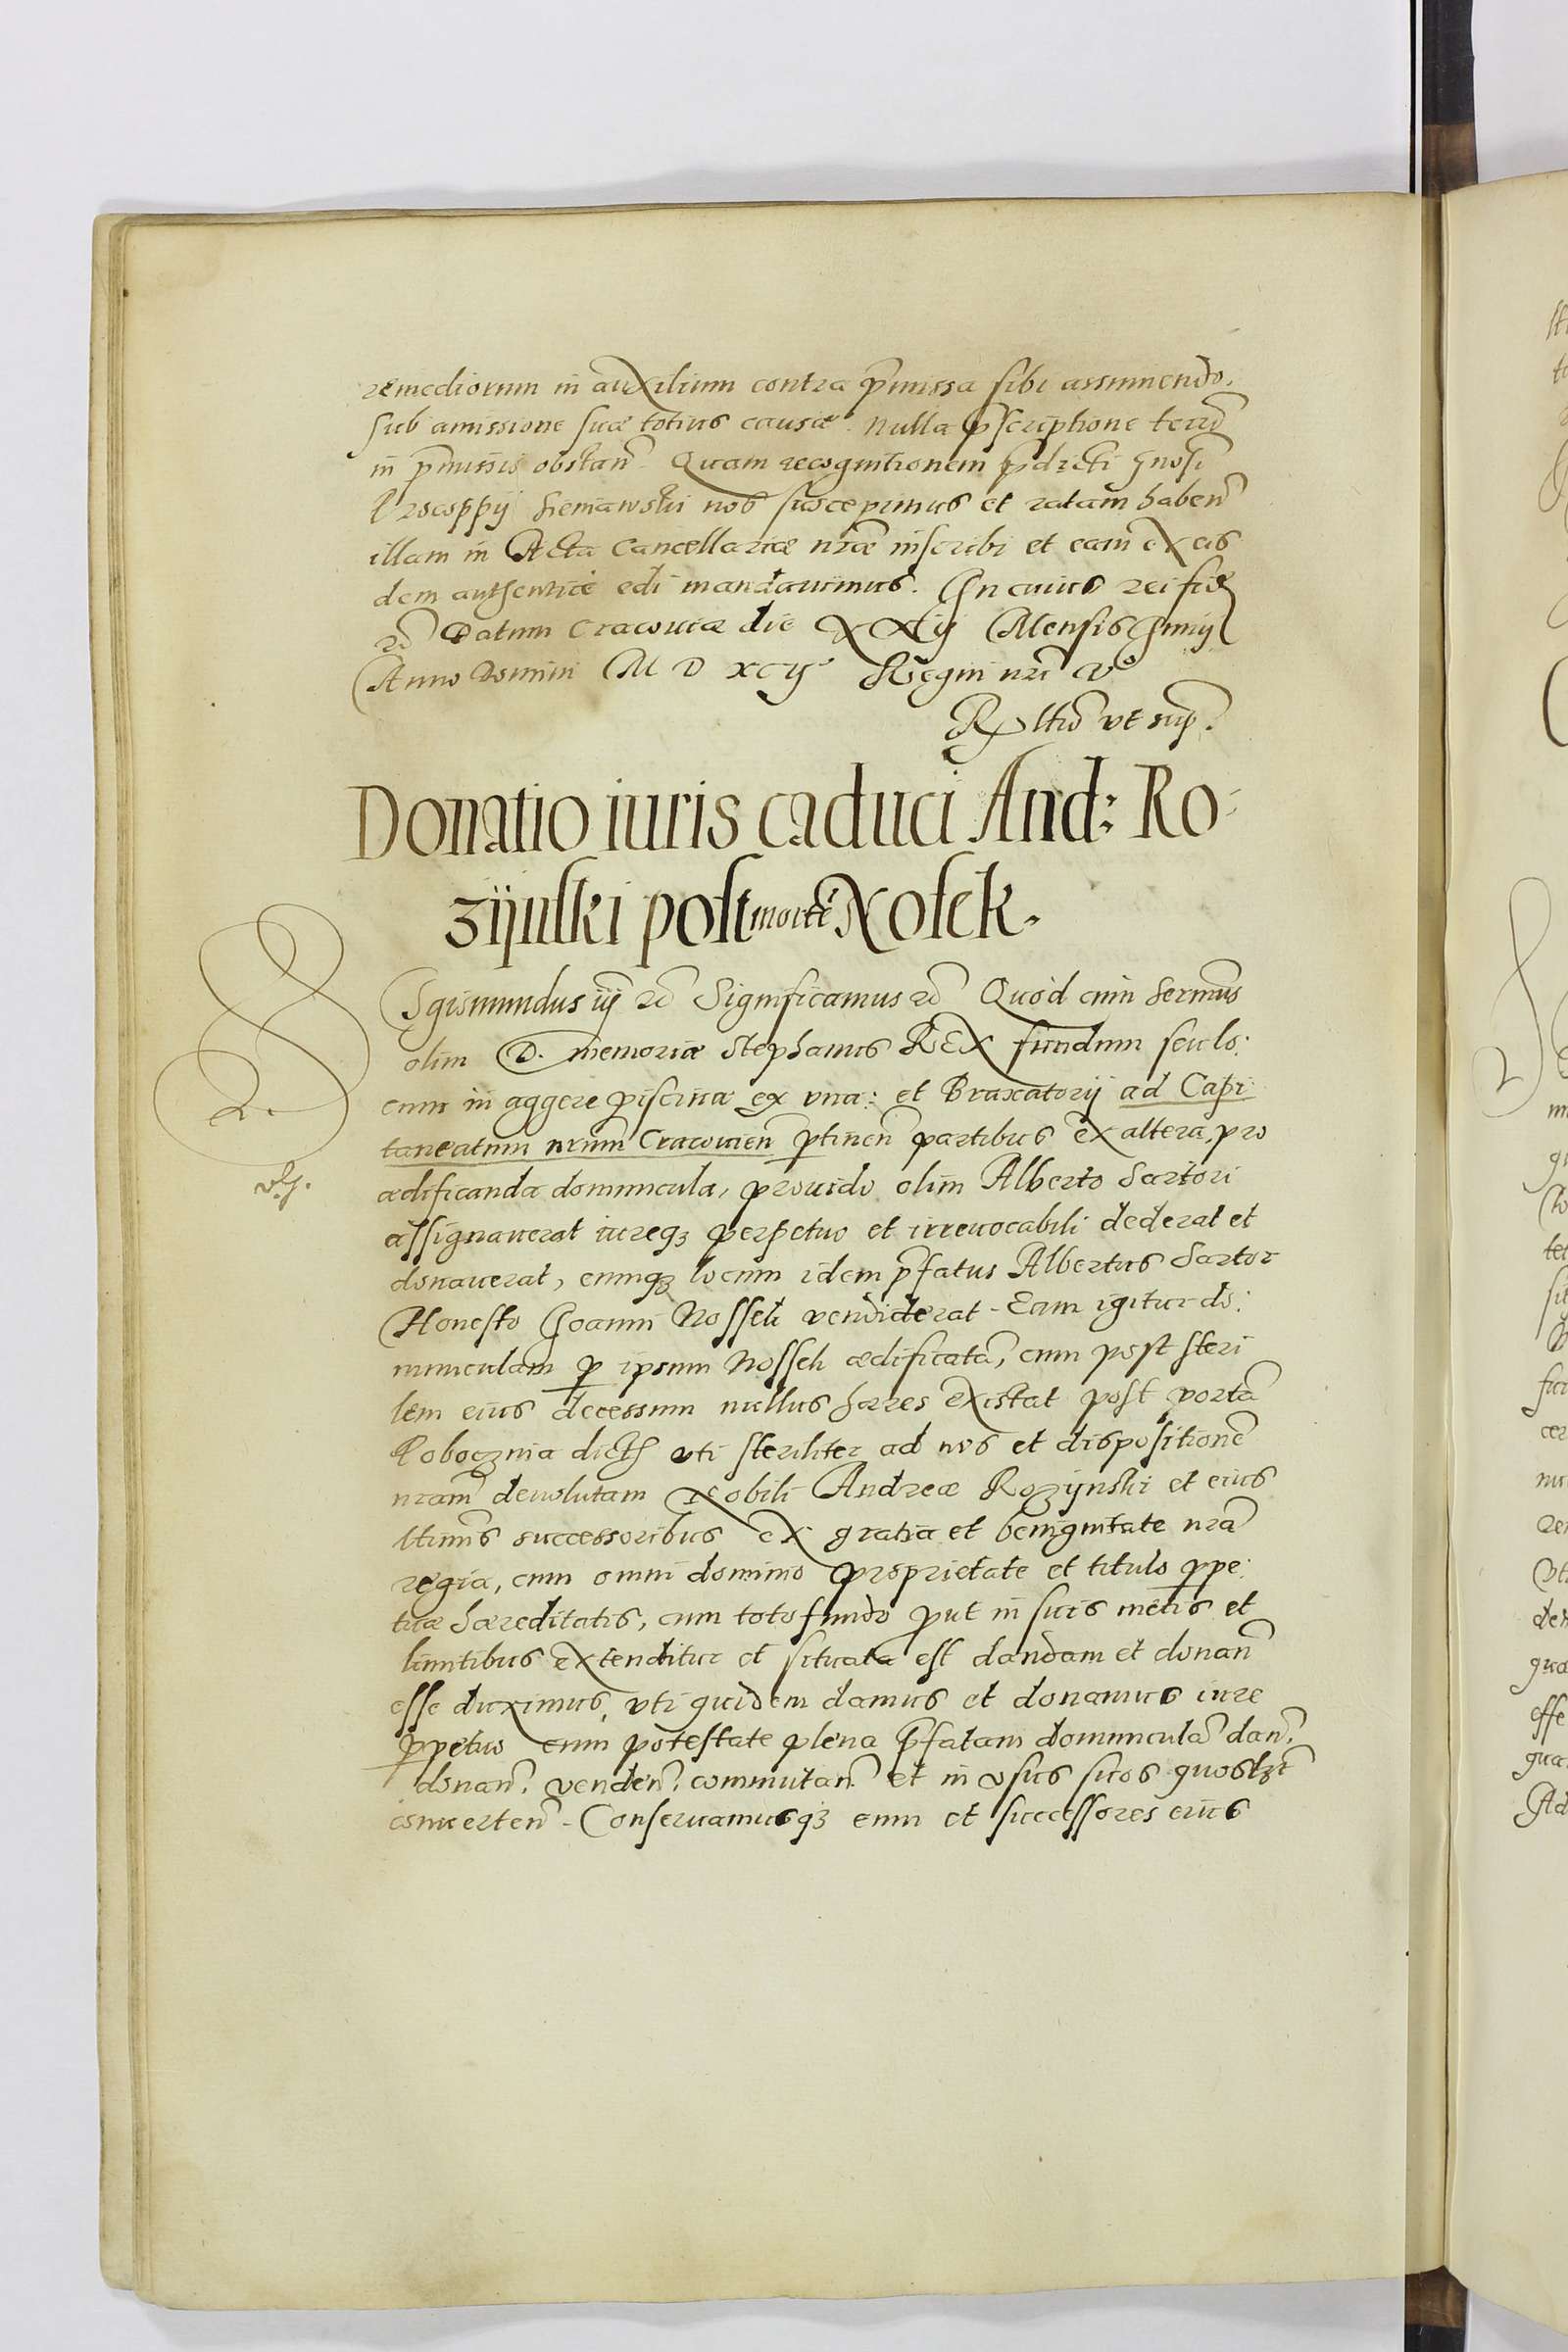 remediorum in auxilium contra p̄missa sibi assumendo,
sub amissione suæ totius causæ. Nulla p̱scriptione terrē
in p̄missis obstan̄. Quam recognitionem p̄dicti Gnosi
Procoppij Siemawski nos suscepimus et ratam haben̄
illam in Acta Cancellariæ nr̄æ inscribi et eam ex eis
dem authenticè edi mandauimus. In cuius rei fidē
&c̄ Datum Cracouiæ die XXIIj Mensis Junij
Anno Domini M D XCIJ Regni nr̄i Vo
R̄ltio vt sup̄.
Donatio iuris caduci And: Ro-
zijnski post mortē Nosek.
Sgismundus iij &c̄ Significamus &c̄ Quod cum Sermūs
olim D. memoriæ Stephanus REX fundum seu lo:
cum in aggere piscinæ ex vna: et Braxatorij ad Capi
taneatum nrūm Cracouien̄ p̱tinen̄ partibus ex altera, pro
ædificanda domuncula, prouido olim Alberto Sartori
assignauerat iureq3 perpetuo et irreuocabili dederat et
donauerat, eumq3 locum idem p̄fatus Albertus Sartor
Honesto Joanni Nossek vendiderat. Eam igitur do:
munculam p̱ ipsum Nossek ædificatā, cum post steri
lem eius decessum nullus hæres existat post portā
Pobocznia dictā vti steriliter ad nos et dispositionē
nram̄ deuolutam Nobili Andreæ Rozijnski et eius
ltimis successoribus ex gratia et benignitate nr̄a
regia, cum omni dominio proprietate et titulo p̱pe:
tuæ hæreditatis, cum toto fundo p̱ut in suis metis et
limitibus extenditur et situata est dandam et donan̄
esse duximus, vti quidem damus et donamus iure
p̱petuo cum potestate plena p̄fatam domunculā dan̄.
donan̄. venden̄. commutan̄ et in vsus suos quoslzt
conuerten̄. Conseruamusq3 eum et successores eius
2.